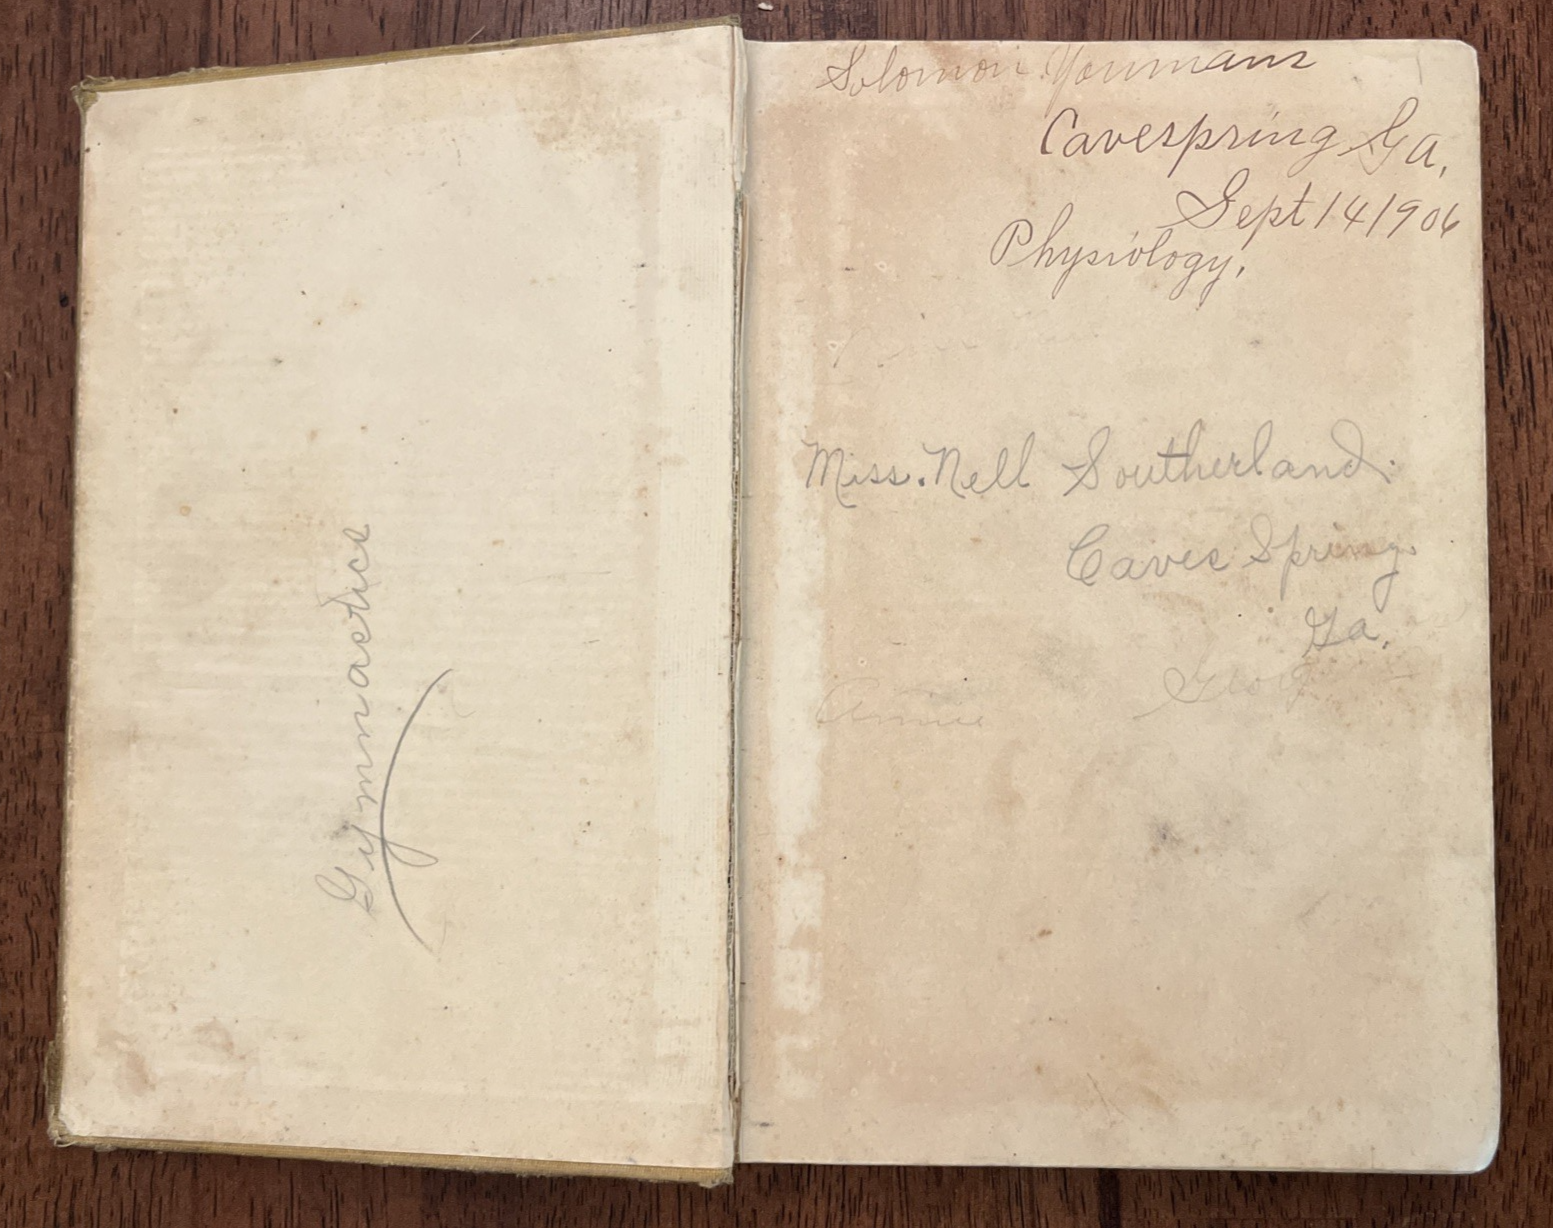 Gymnastics
Solomon Youmans
Cavespring Ga,
Sept 14 1906
Physiology,
Miss. Nell Southerland.
Caves Spring.
Ga.
Annie